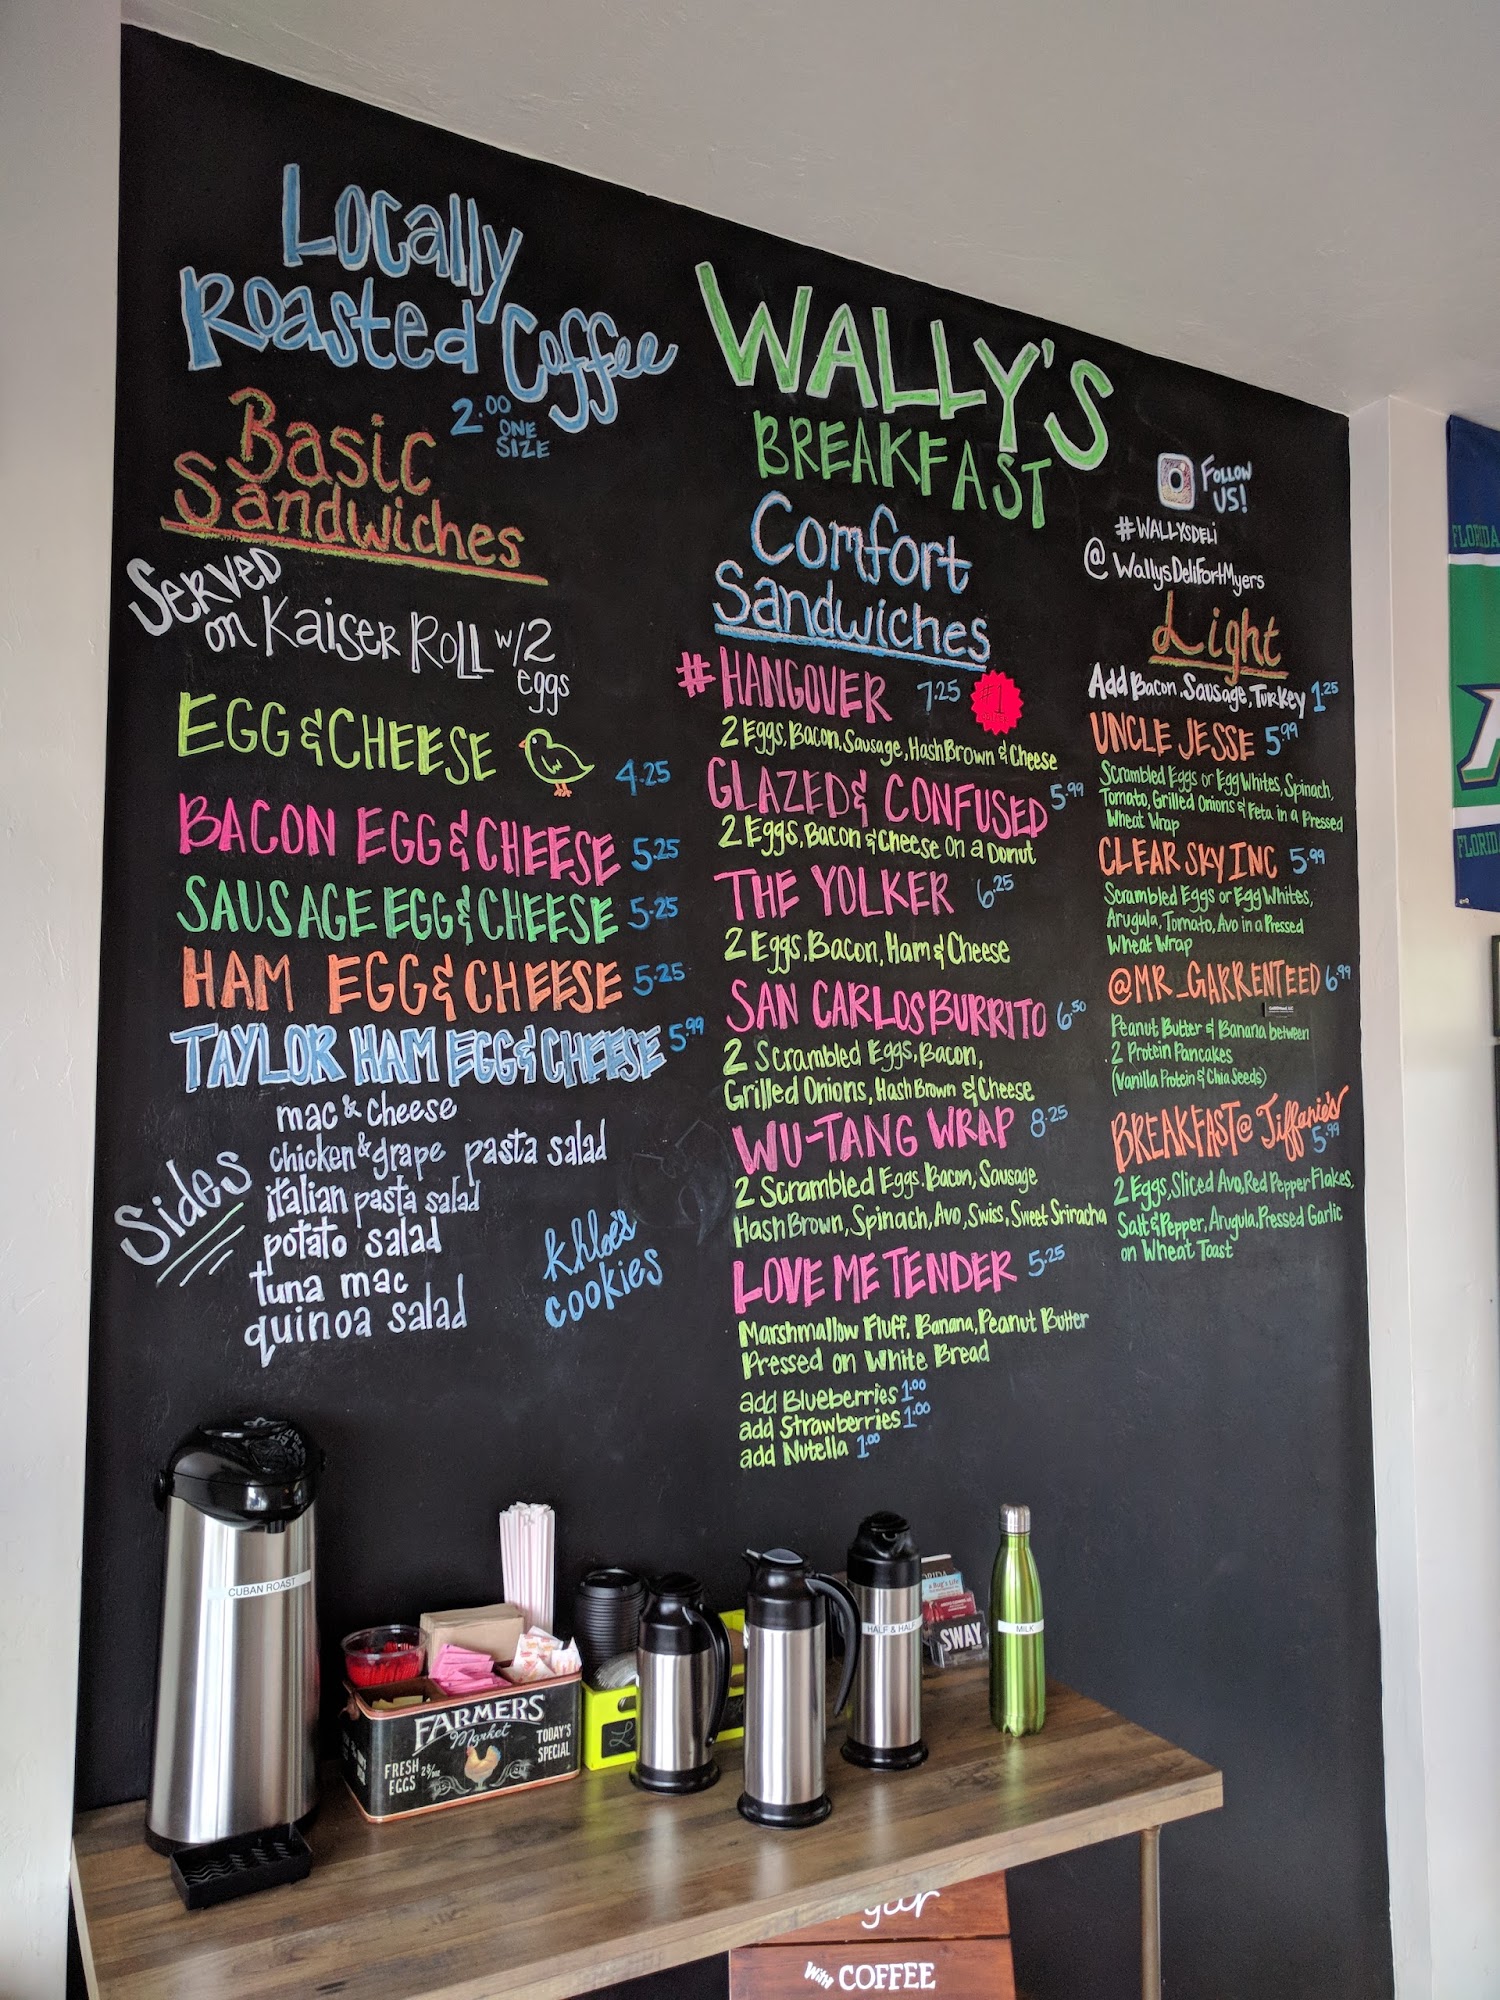 Locally
Roasted Coffee
2.00
ONE
SIZE
Basic
Sandwiches
SERVED
on Kaiser Roll w/2
eggs
EGG & CHEESE 4.25
BACON EGG & CHEESE 5.25
SAUSAGE EGG & CHEESE 5.25
HAM EGG & CHEESE 5.25
TAYLOR HAM EGG & CHEESE 5.99
Sides
mac & cheese
chicken & grape pasta salad
italian pasta salad
potato salad
tuna mac
quinoa salad
khloe's
cookies
WALLY'S
BREAKFAST
Comfort
Sandwiches
#HANGOVER 7.25 #1
2 Eggs, Bacon, Sausage, Hash Brown & Cheese
GLAZED & CONFUSED 5.99
2 Eggs, Bacon & Cheese on a Donut
THE YOLKER 6.25
2 Eggs, Bacon, Ham & Cheese
SAN CARLOS BURRITO 6.50
2 Scrambled Eggs, Bacon,
Grilled Onions, Hash Brown & Cheese
WU-TANG WRAP 8.25
2 Scrambled Eggs, Bacon, Sausage
Hash Brown, Spinach, Avo, Swiss, Sweet Sriracha
LOVE ME TENDER 5.25
Marshmallow Fluff, Banana, Peanut Butter
Pressed on White Bread
add Blueberries 1.00
add Strawberries 1.00
add Nutella 1.00
FOLLOW
US!
#WALLYSDELi
@WallysDeliFortMyers
Light
Add Bacon, Sausage, Turkey 1.25
UNCLE JESSE 5.99
Scrambled Eggs or Egg Whites, Spinach,
Tomato, Grilled Onions & Feta in a Pressed
Wheat Wrap
CLEAR SKY INC 5.99
Scrambled Eggs or Egg Whites,
Arugula, Tomato, Avo in a Pressed
Wheat Wrap
@MR_GARRENTEED 6.99
Peanut Butter & Banana between
2 Protein Pancakes
(Vanilla Protein & Chia Seeds)
BREAKFAST @ Tiffanie's
5.99
2 Eggs, Sliced Avo, Red Pepper Flakes,
Salt & Pepper, Arugula, Pressed Garlic
on Wheat Toast
FLORIDA
FLORIDA
CUBAN ROAST
FARMERS
Market
FRESH
EGGS
TODAY'S
SPECIAL
HALF & HALF
SWAY
MILK
With COFFEE